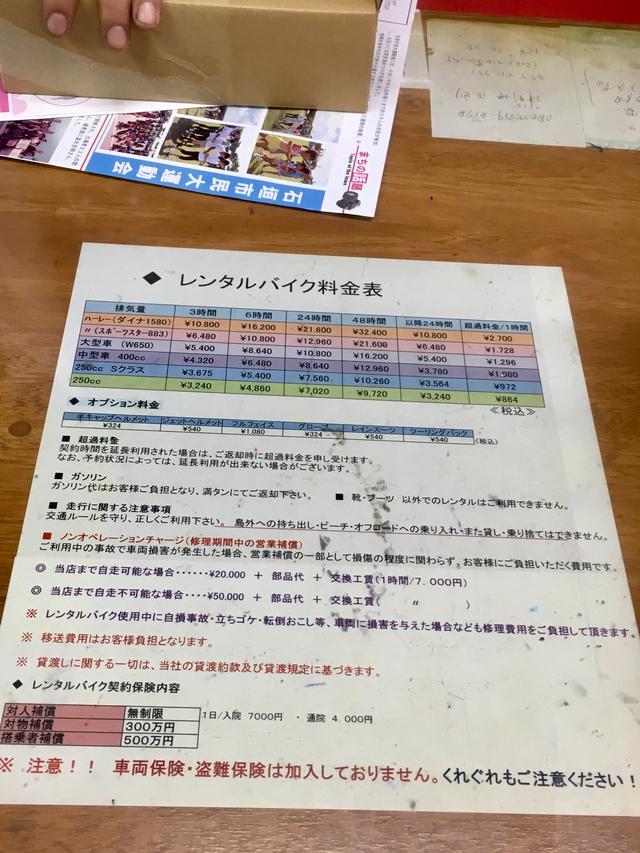 石垣市民大運動会
まちの話題
◆ レンタルバイク料金表
排気量 3時間 6時間 24時間 48時間 以降24時間 超過料金/1時間
ハーレー(ダイナ1580) ¥10.800 ¥16.200 ¥21.600 ¥32.400 ¥10.800 ¥2.700
〃(スポーツスター883) ¥6.480 ¥10.800 ¥12.960 ¥21.600 ¥6.480 ¥1.728
大型車 (W650) ¥5.400 ¥8.640 ¥10.800 ¥16.200 ¥5.400 ¥1.296
中型車 400cc ¥4.320 ¥6.480 ¥8.640 ¥12.960 ¥3.780 ¥1.080
250cc Sクラス ¥3.675 ¥5.400 ¥7.560 ¥10.260 ¥3.564 ¥972
250cc ¥3,240 ¥4,860 ¥7,020 ¥9,720 ¥3,240 ¥864
≪税込≫
◆ オプション料金
半キャップヘルメット ジェットヘルメット フルフェイス グローブ レインスーツ ツーリングバック
¥324 ¥540 ¥1,080 ¥324 ¥540 ¥540 (税込)
■ 超過料金
契約時間を延長利用された場合は、ご返却時に超過料金を申し受けます。
なお、予約状況によっては、延長利用が出来ない場合がございます。
■ ガソリン
ガソリン代はお客様ご負担となり、満タンにてご返却下さい。 ■ 靴・ブーツ 以外でのレンタルはご利用できません。
■ 走行に関する注意事項
交通ルールを守り、正しくご利用下さい。 島外への持ち出し・ビーチ・オフロードへの乗り入れ・また貸し・乗り捨てはできません。
■ ノンオペレーションチャージ(修理期間中の営業補償)
ご利用中の事故で車両損害が発生した場合、営業補償の一部として損傷の程度に関わらず、お客様にご負担いただく費用です。
◎ 当店まで自走可能な場合‥‥‥¥20.000 + 部品代 + 交換工賃(1時間/7.000円)
◎ 当店まで自走不可能な場合‥‥¥50.000 + 部品代 + 交換工賃( 〃 )
※ レンタルバイク使用中に自損事故・立ちゴケ・転倒おこし等、車両に損害を与えた場合なども修理費用をご負担して頂きます。
※ 移送費用はお客様負担となります。
※ 貸渡しに関する一切は、当社の貸渡約款及び貸渡規定に基づきます。
◆ レンタルバイク契約保険内容
対人補償 無制限 1日/入院 7000円 ・通院 4.000円
対物補償 300万円
搭乗者補償 500万円
※ 注意!! 車両保険・盗難保険は加入しておりません。くれぐれもご注意ください!